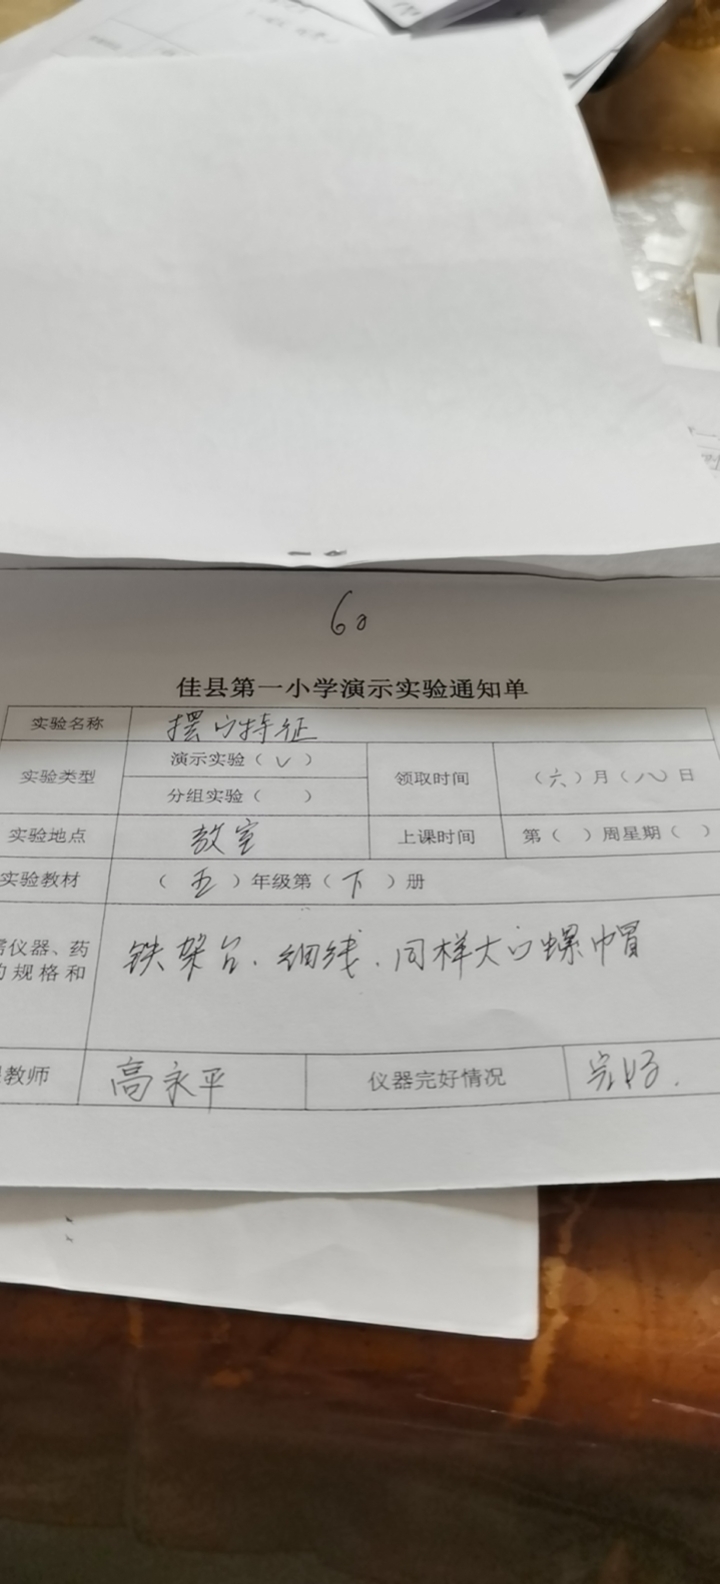 60
佳县第一小学演示实验通知单
实验名称 摆的特征
实验类型 演示实验（✓） 领取时间 （六）月（八）日
分组实验（ ）
实验地点 教室 上课时间 第（ ）周星期（ ）
实验教材 （五）年级第（下）册
仪器、药
规格和
铁架台、细线、同样大的螺帽
教师 高永平 仪器完好情况 完好.